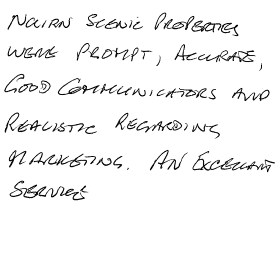 NAIRN SCENIC PROPERTIES
WERE PROMPT, ACCURATE,
GOOD COMMUNICATORS AND
REALISTIC REGARDING
MARKETING. AN EXCELLENT
SERVICE